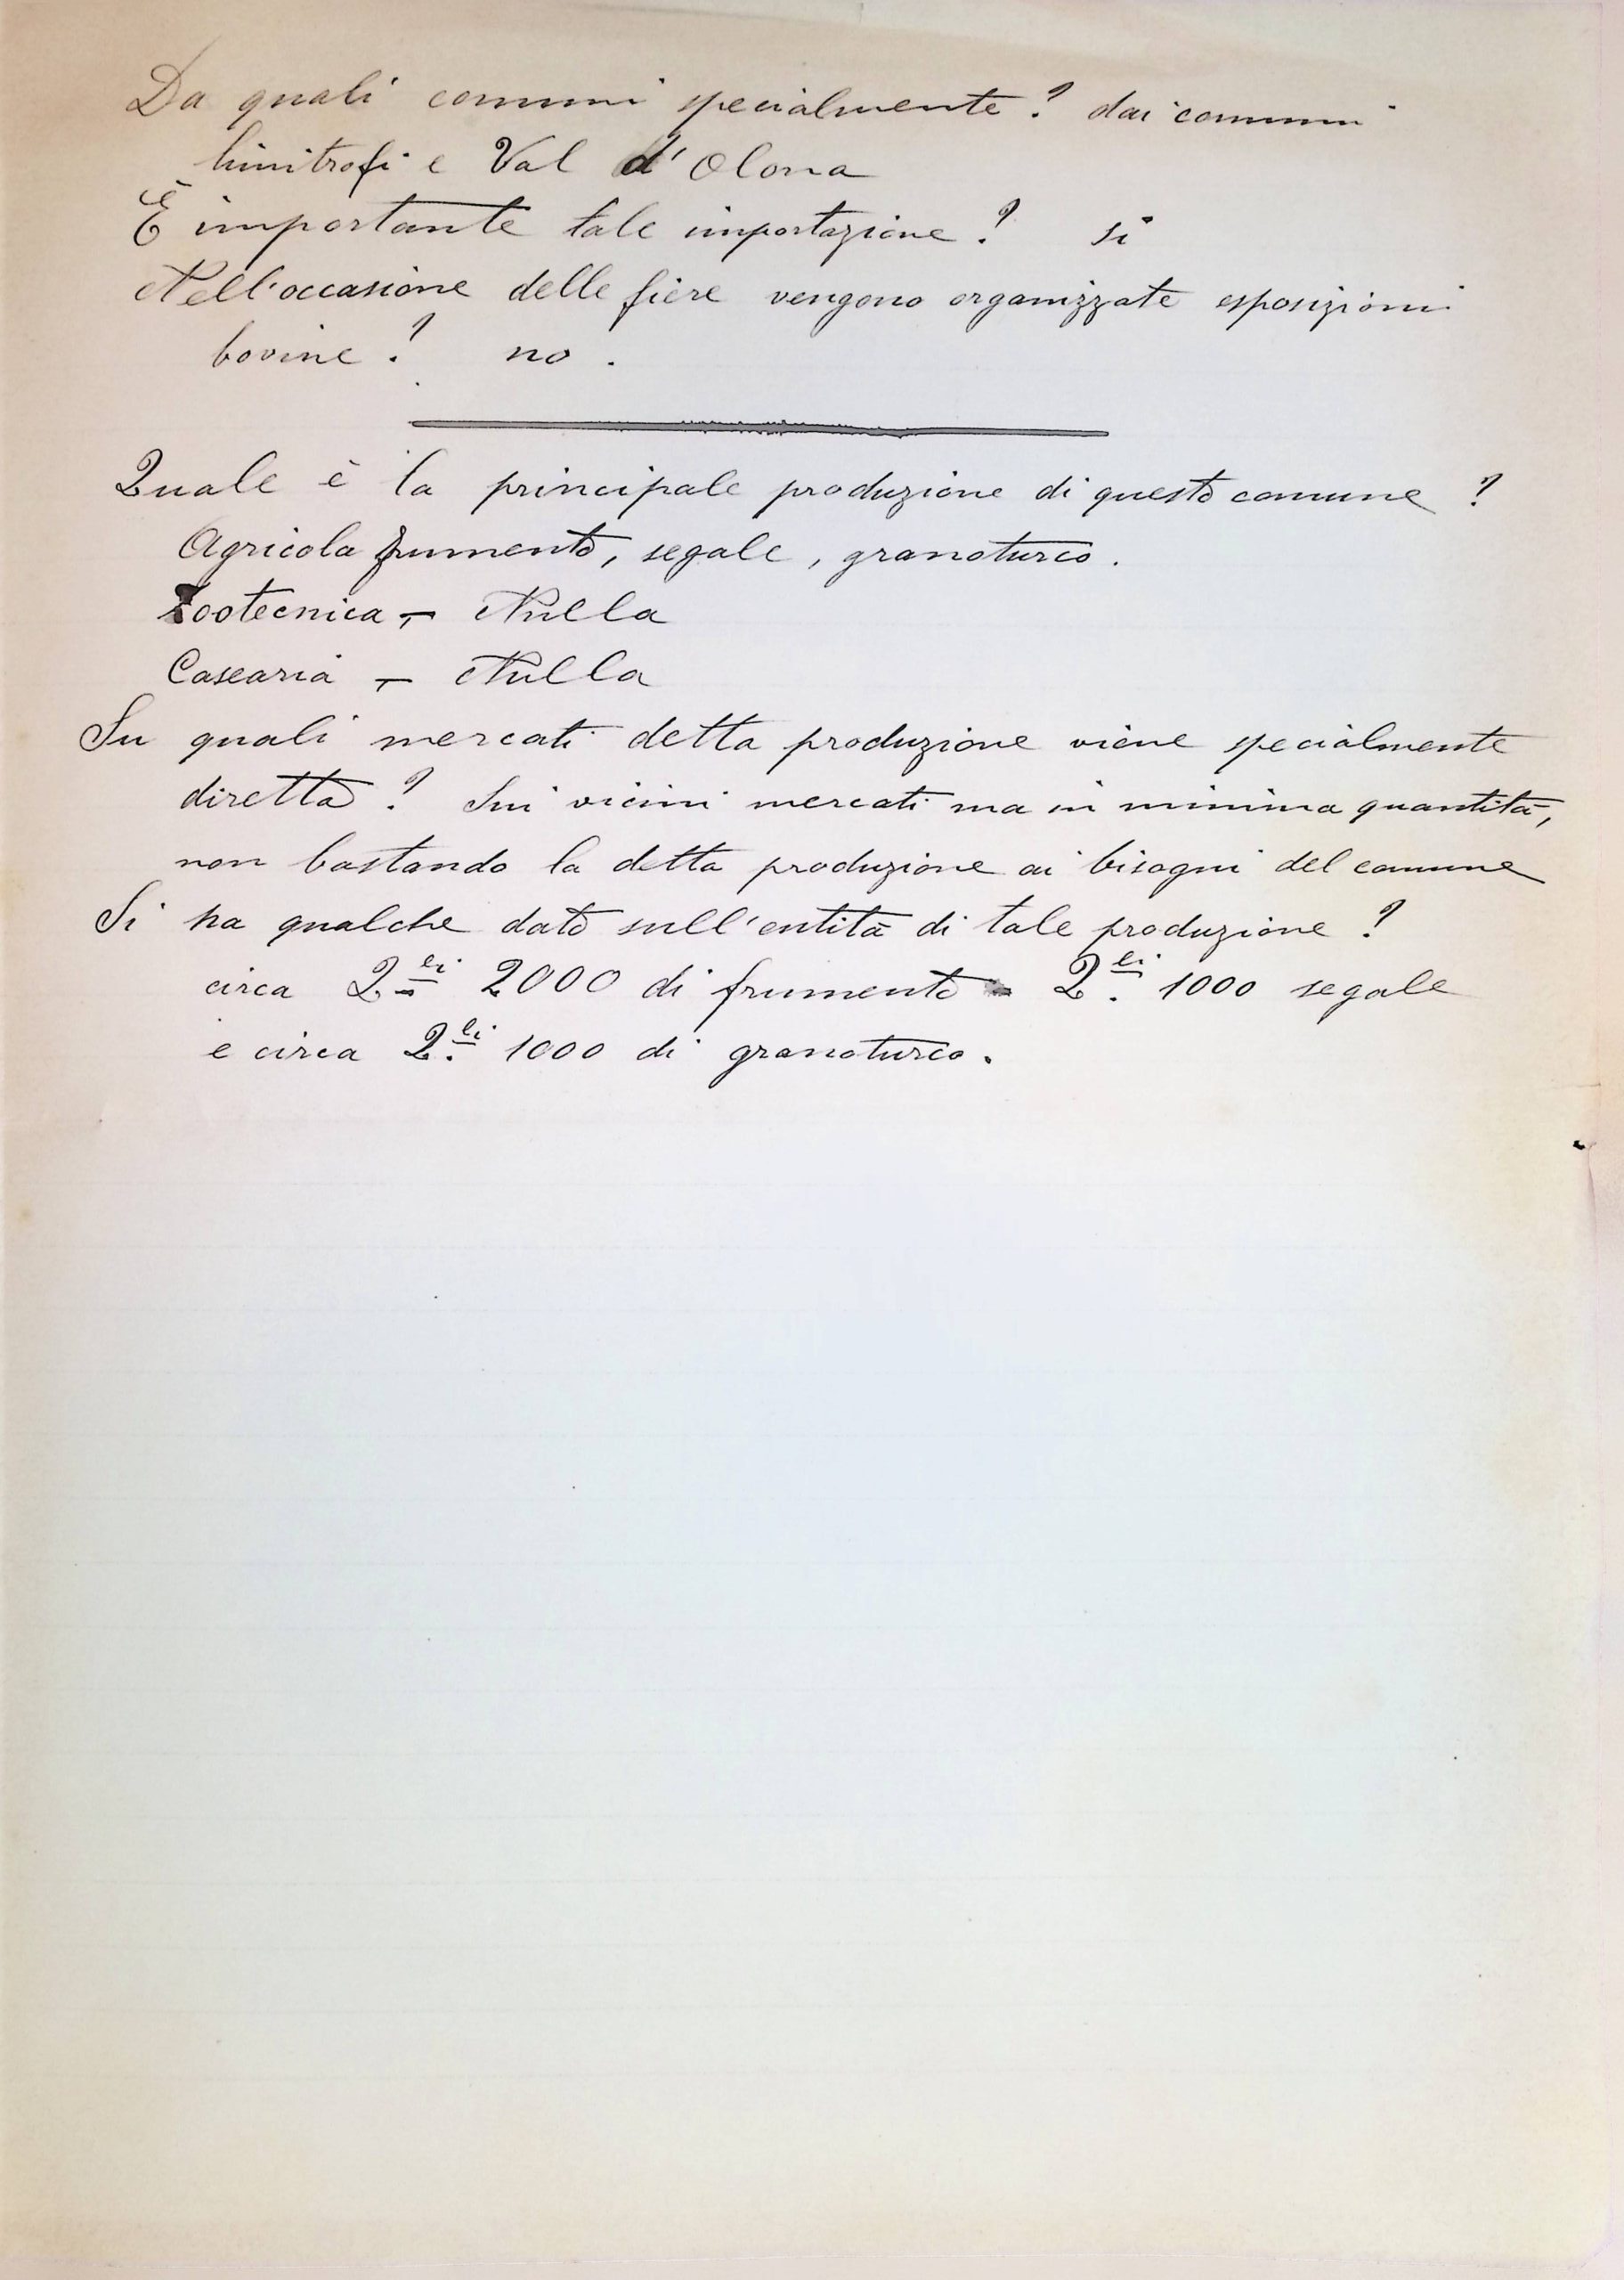 Da quali comuni specialmente? dai comuni
limitrofi e Val d'Olona
È importante tale importazione? si
Nell'occasione delle fiere vengono organizzate esposizioni
bovine? no.
Quale è la principale produzione di questo comune?
Agricola frumento, segale, granoturco.
Zootecnica - Nulla
Casearia - Nulla
Su quali mercati detta produzione viene specialmente
diretta? Sui vicini mercati ma in minima quantità,
non bastando la detta produzione ai bisogni del comune
Si ha qualche dato sull'entità di tale produzione?
circa Q.li 2000 di frumento - Q.li 1000 segale
e circa Q.li 1000 di granoturco.